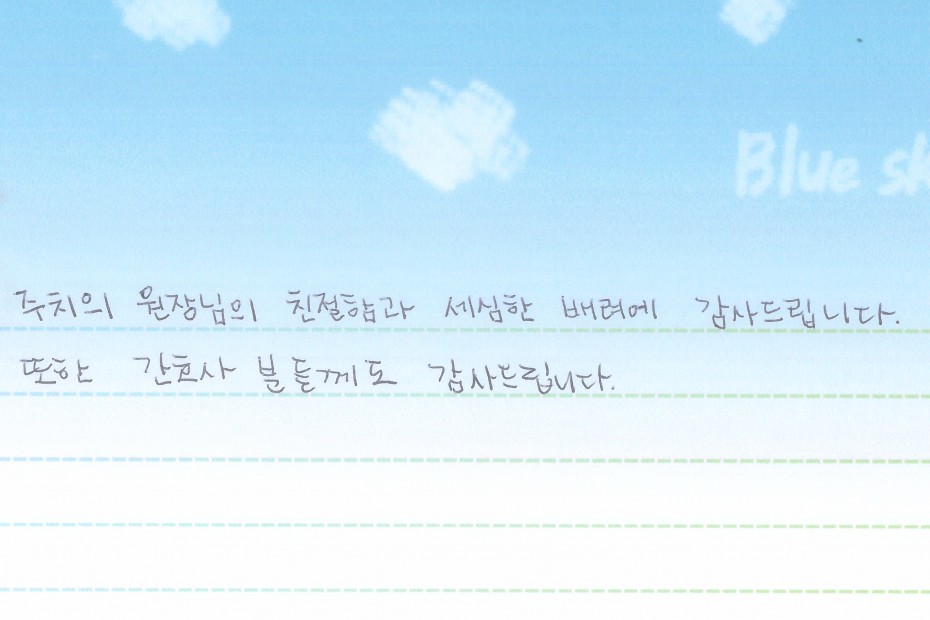 Blue sk
주치의 원장님의 친절함과 세심한 배려에 감사드립니다.
또한 간호사 분들께도 감사드립니다.